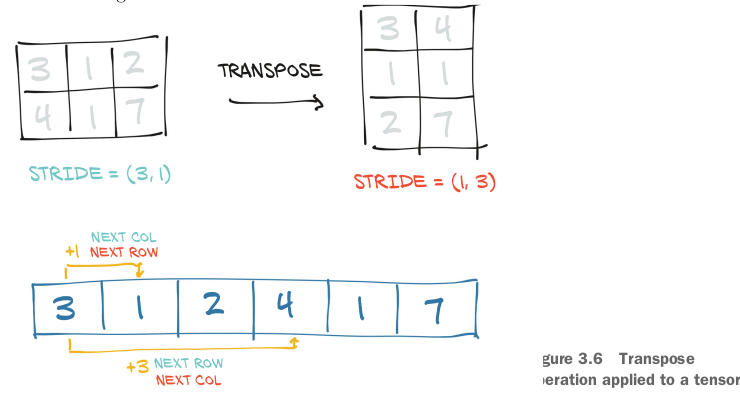 3 1 2
4 1 7
TRANSPOSE
3 4
1 1
2 7
STRIDE = (3, 1)
STRIDE = (1, 3)
NEXT COL
+1 NEXT ROW
3 1 2 4 1 7
+3 NEXT ROW
NEXT COL
gure 3.6 Transpose
eration applied to a tensor